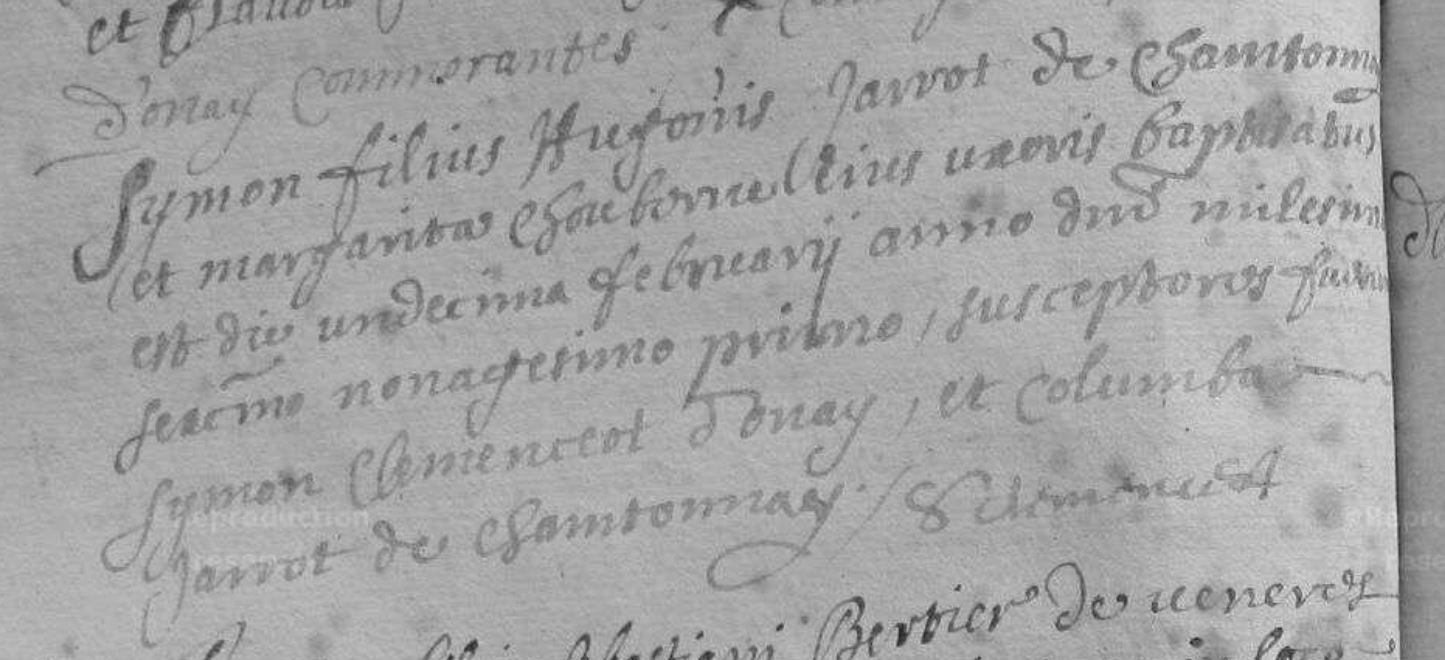 et
d'onay Commorantes
Symon filius Hugonis Jarrot de Chamtonnay
et margaritæ Choubornel eius uxoris baptisatus
est die undecima februarij anno dnū milesimo
sexcmo nonagesimo primo, susceptores fuere
Symon Clemenceot d'onay, et Columba
Jarrot de chamtonnay / S Clemenceot
Bertier de venere